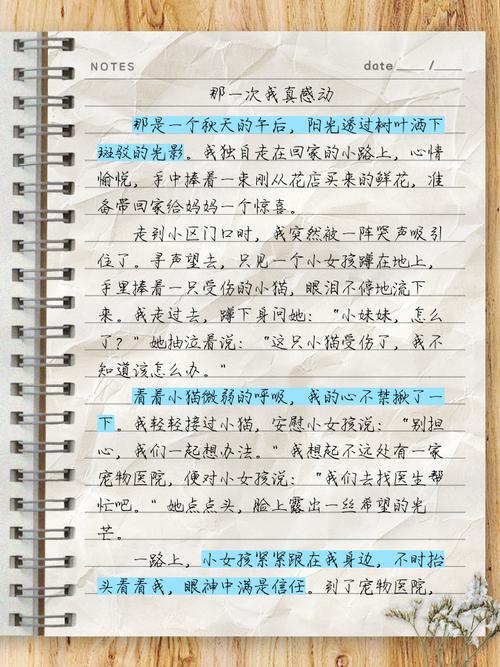 NOTES
date ____ / ____
那一次我真感动
那是一个秋天的午后，阳光透过树叶洒下
斑驳的光影。我独自走在回家的小路上，心情
愉悦，手中捧着一束刚从花店买来的鲜花，准
备带回家给妈妈一个惊喜。
走到小区门口时，我突然被一阵哭声吸引
住了。寻声望去，只见一个小女孩蹲在地上，
手里捧着一只受伤的小猫，眼泪不停地流下
来。我走过去，蹲下身问她：“小妹妹，怎么
了？”她抽泣着说：“这只小猫受伤了，我不
知道该怎么办。”
看着小猫微弱的呼吸，我的心不禁揪了一
下。我轻轻接过小猫，安慰小女孩说：“别担
心，我们一起想办法。”我想起不远处有一家
宠物医院，便对小女孩说：“我们去找医生帮
忙吧。”她点点头，脸上露出一丝希望的光
芒。
一路上，小女孩紧紧跟在我身边，不时抬
头看看我，眼神中满是信任。到了宠物医院，